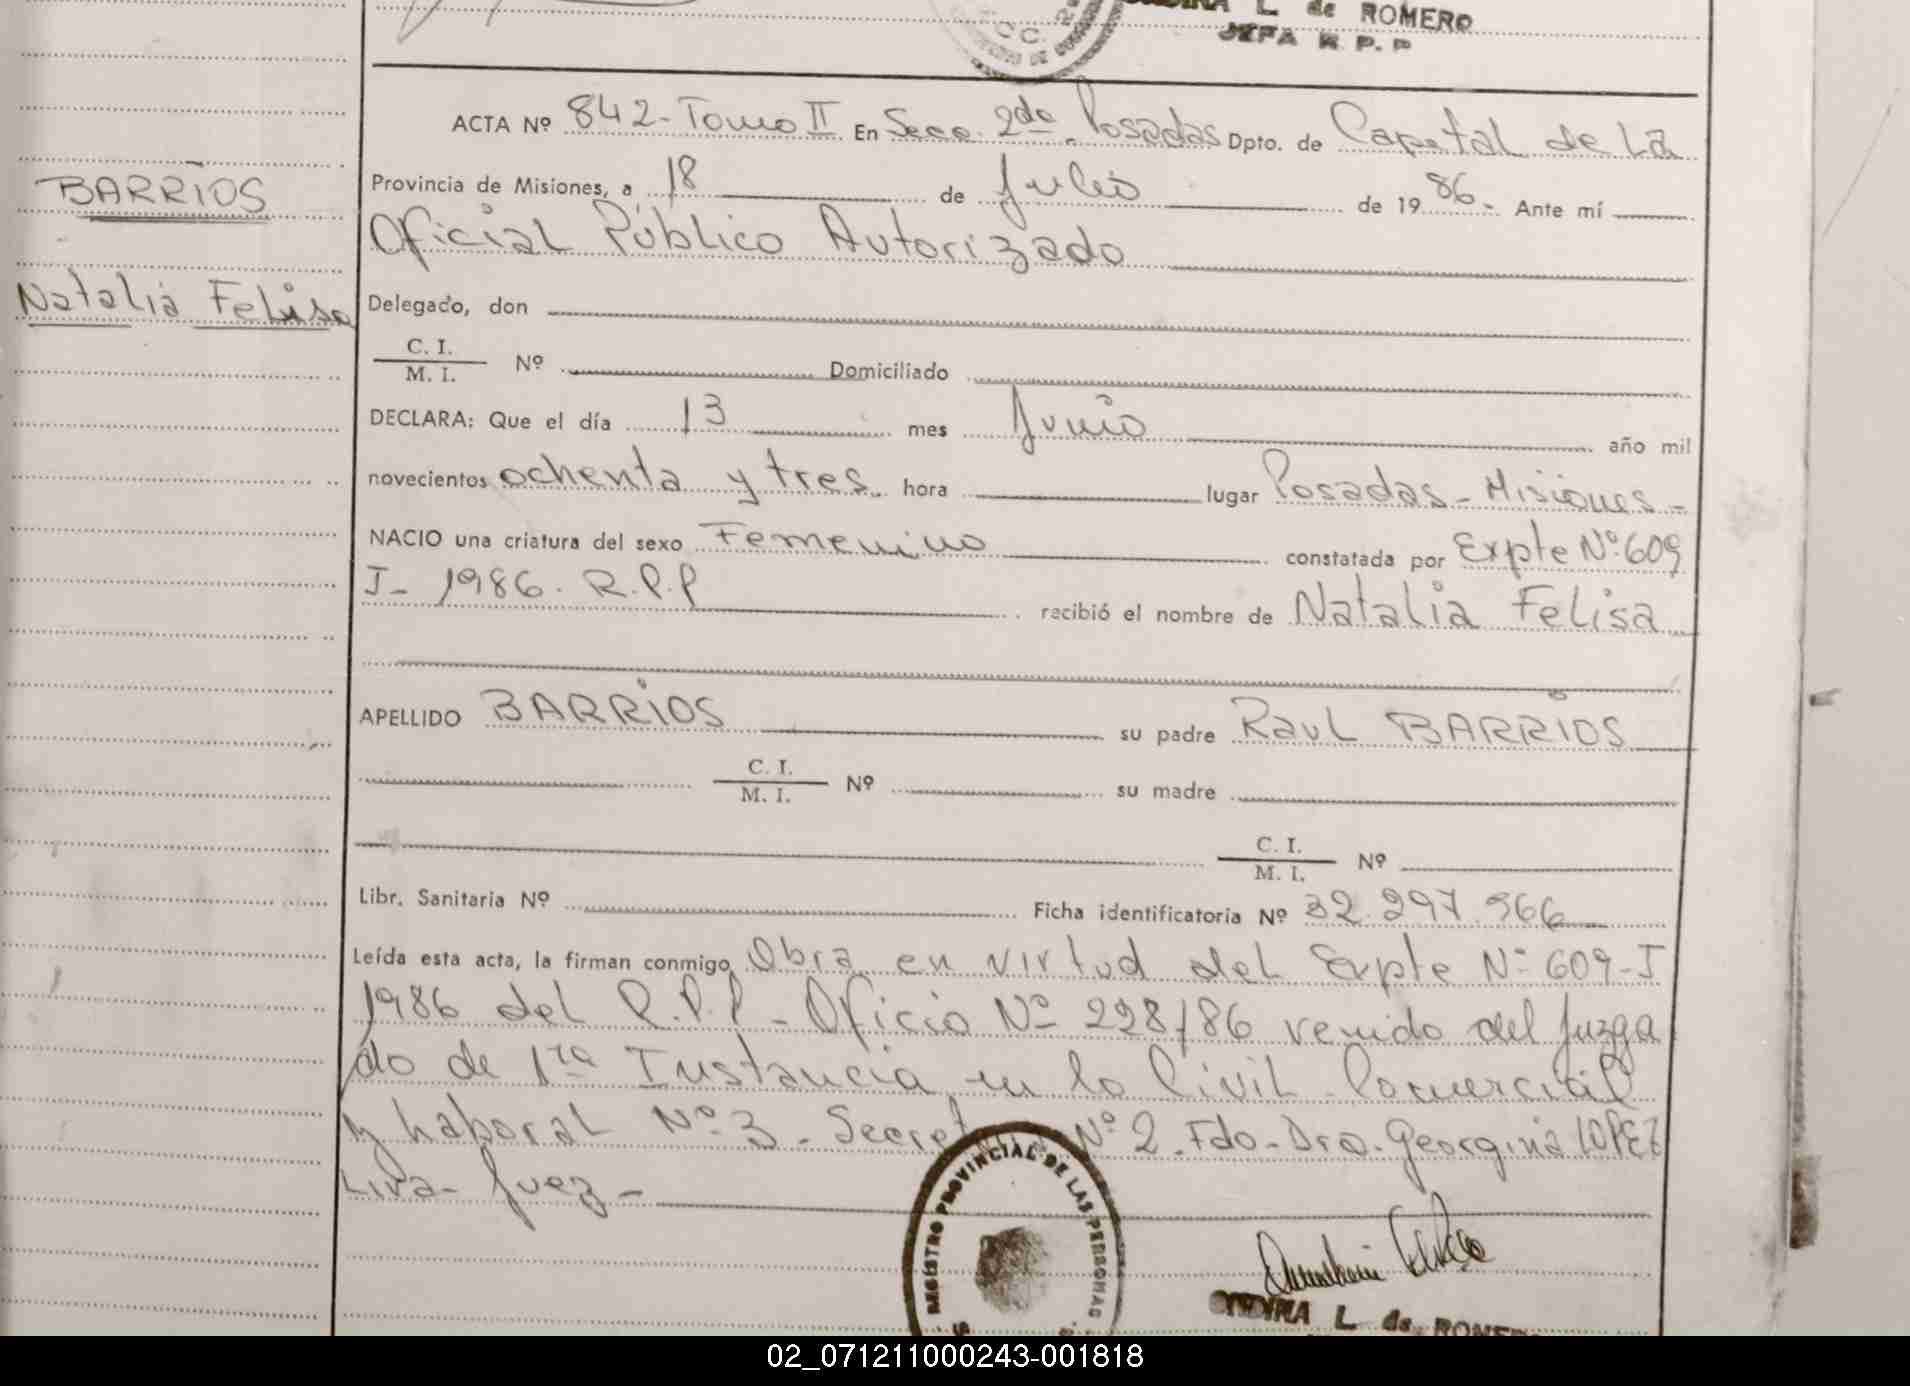 L. de ROMERO
JEFA R. P. P
ACTA Nº 842-Tomo II En Secc. 2da. Posadas Dpto. de Capital de La
BARRIOS
Provincia de Misiones, a 18 de Julio de 1986. Ante mí
Oficial Público Autorizado
Natalia Felisa
Delegado, don
C. I.
M. I. Nº Domiciliado
DECLARA: Que el día 13 mes Junio año mil
novecientos ochenta y tres. hora lugar Posadas-Misiones-
NACIO una criatura del sexo Femenino constatada por Expte Nº 609
J- 1986. R.P.P recibió el nombre de Natalia Felisa
APELLIDO BARRIOS su padre Raul BARRIOS
C. I.
M. I. Nº su madre
C. I.
M. I. Nº
Libr. Sanitaria Nº Ficha identificatoria Nº 32.297.566
Leída esta acta, la firman conmigo, Obra en virtud del Expte Nº 609-J
1986 del R.P.P - Oficio Nº 228/86 venido del Juzga
do de 1ra Instancia en lo Civil Comercial
y Laboral Nº 3 - Secret Nº 2. Fdo. Dra. Georgina LOPEZ
Liva- Juez-
REGISTRO PROVINCIAL DE LAS PERSONAS
ONDINA L. de ROMERO
02_071211000243-001818